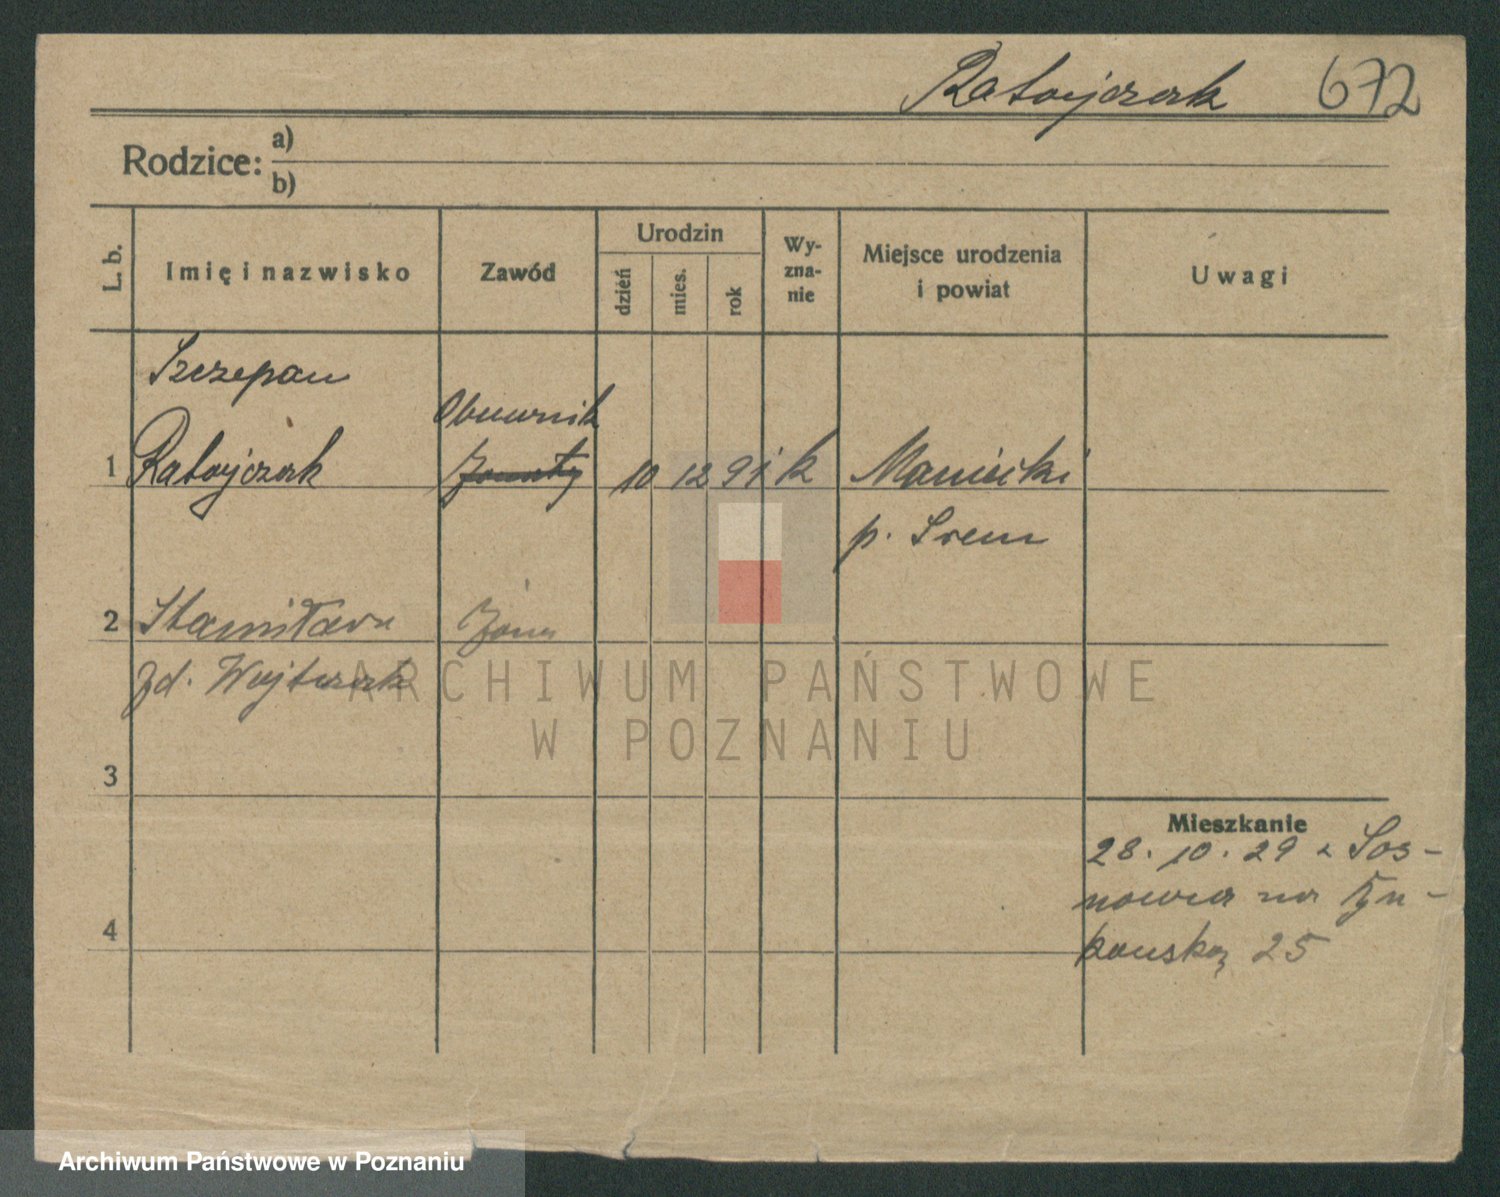 Ratajczak 672
Rodzice: a)
b)
L. b. Imię i nazwisko Zawód Urodzin dzień mies. rok Wy-zna-nie Miejsce urodzenia i powiat Uwagi
Szczepan
Obuwnik
1 Ratajczak Żonaty 10 12 91 k Maniecki
p. Śrem
2 Stanisława Żona
zd. Wojtczak
ARCHIWUM PAŃSTWOWE
W POZNANIU
3
Mieszkanie
28. 10. 29 z Sos-
nowca na
4
25
Archiwum Państwowe w Poznaniu